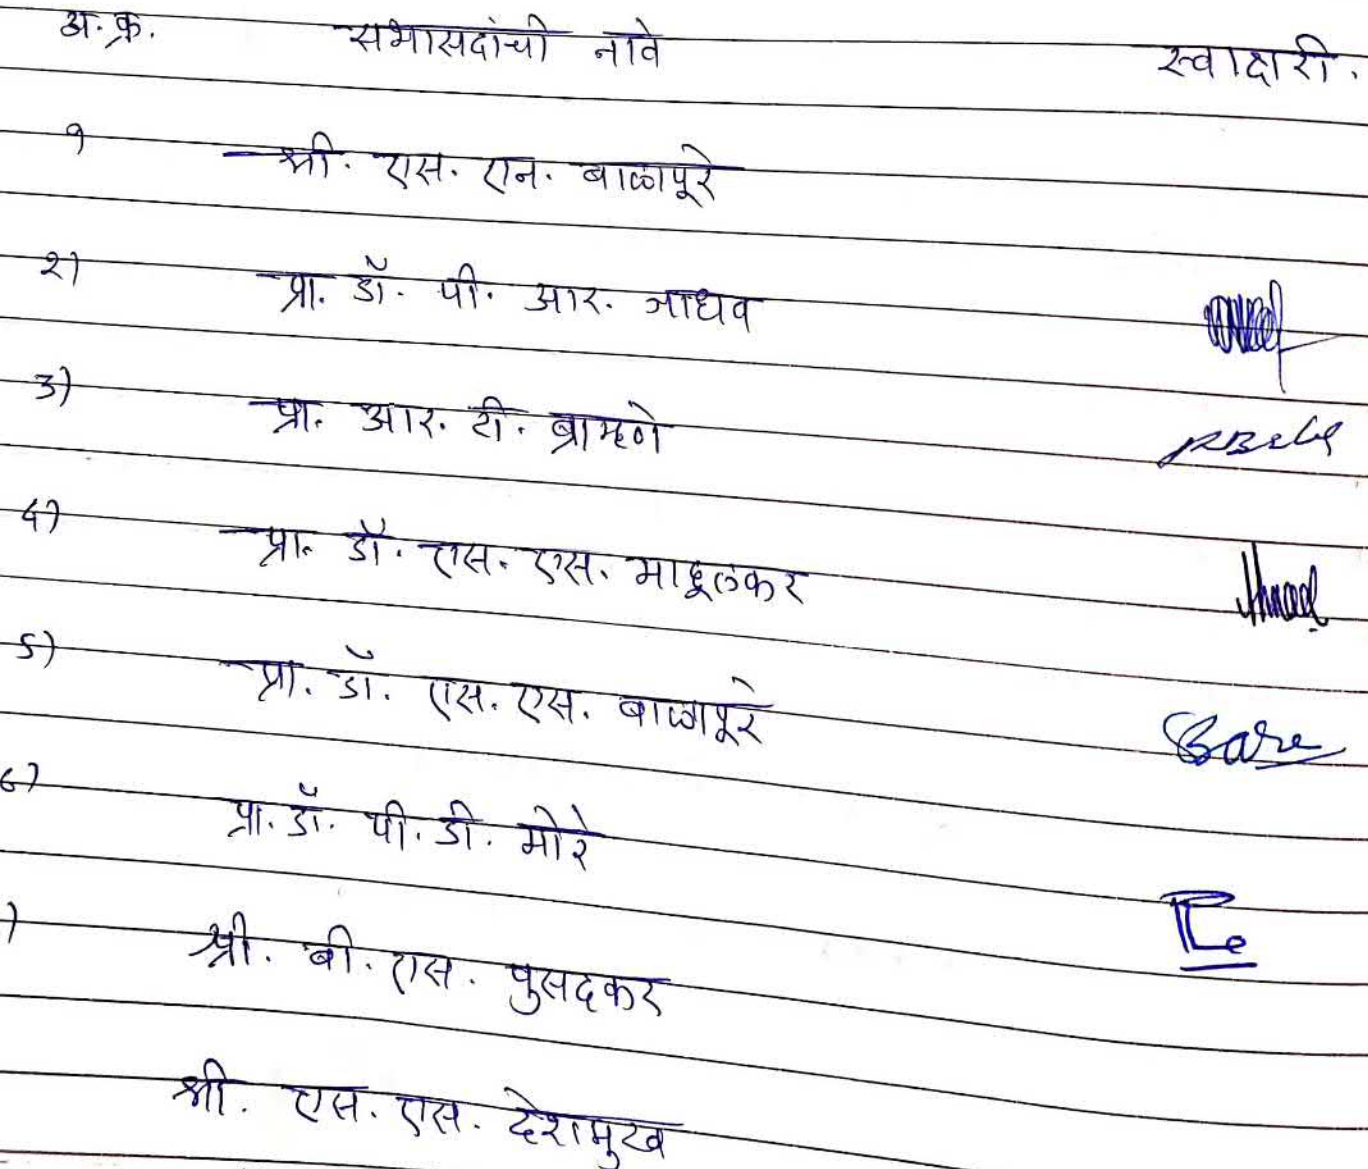 अ. क्र. सभासदांची नावे स्वाक्षरी.
१ श्री. एस. एन. बाळापूरे
२) प्रा. डॉ. पी. आर. जाधव
३) प्रा. आर. टी. ब्राम्हणे
४) प्रा. डॉ. एस. एस.
५) प्रा. डॉ. एस. एस. बाळापूरे
६) प्रा. डॉ. पी. डी. मोरे
) श्री. बी. एस. पुसदकर
श्री. एस. एस. देशमुख